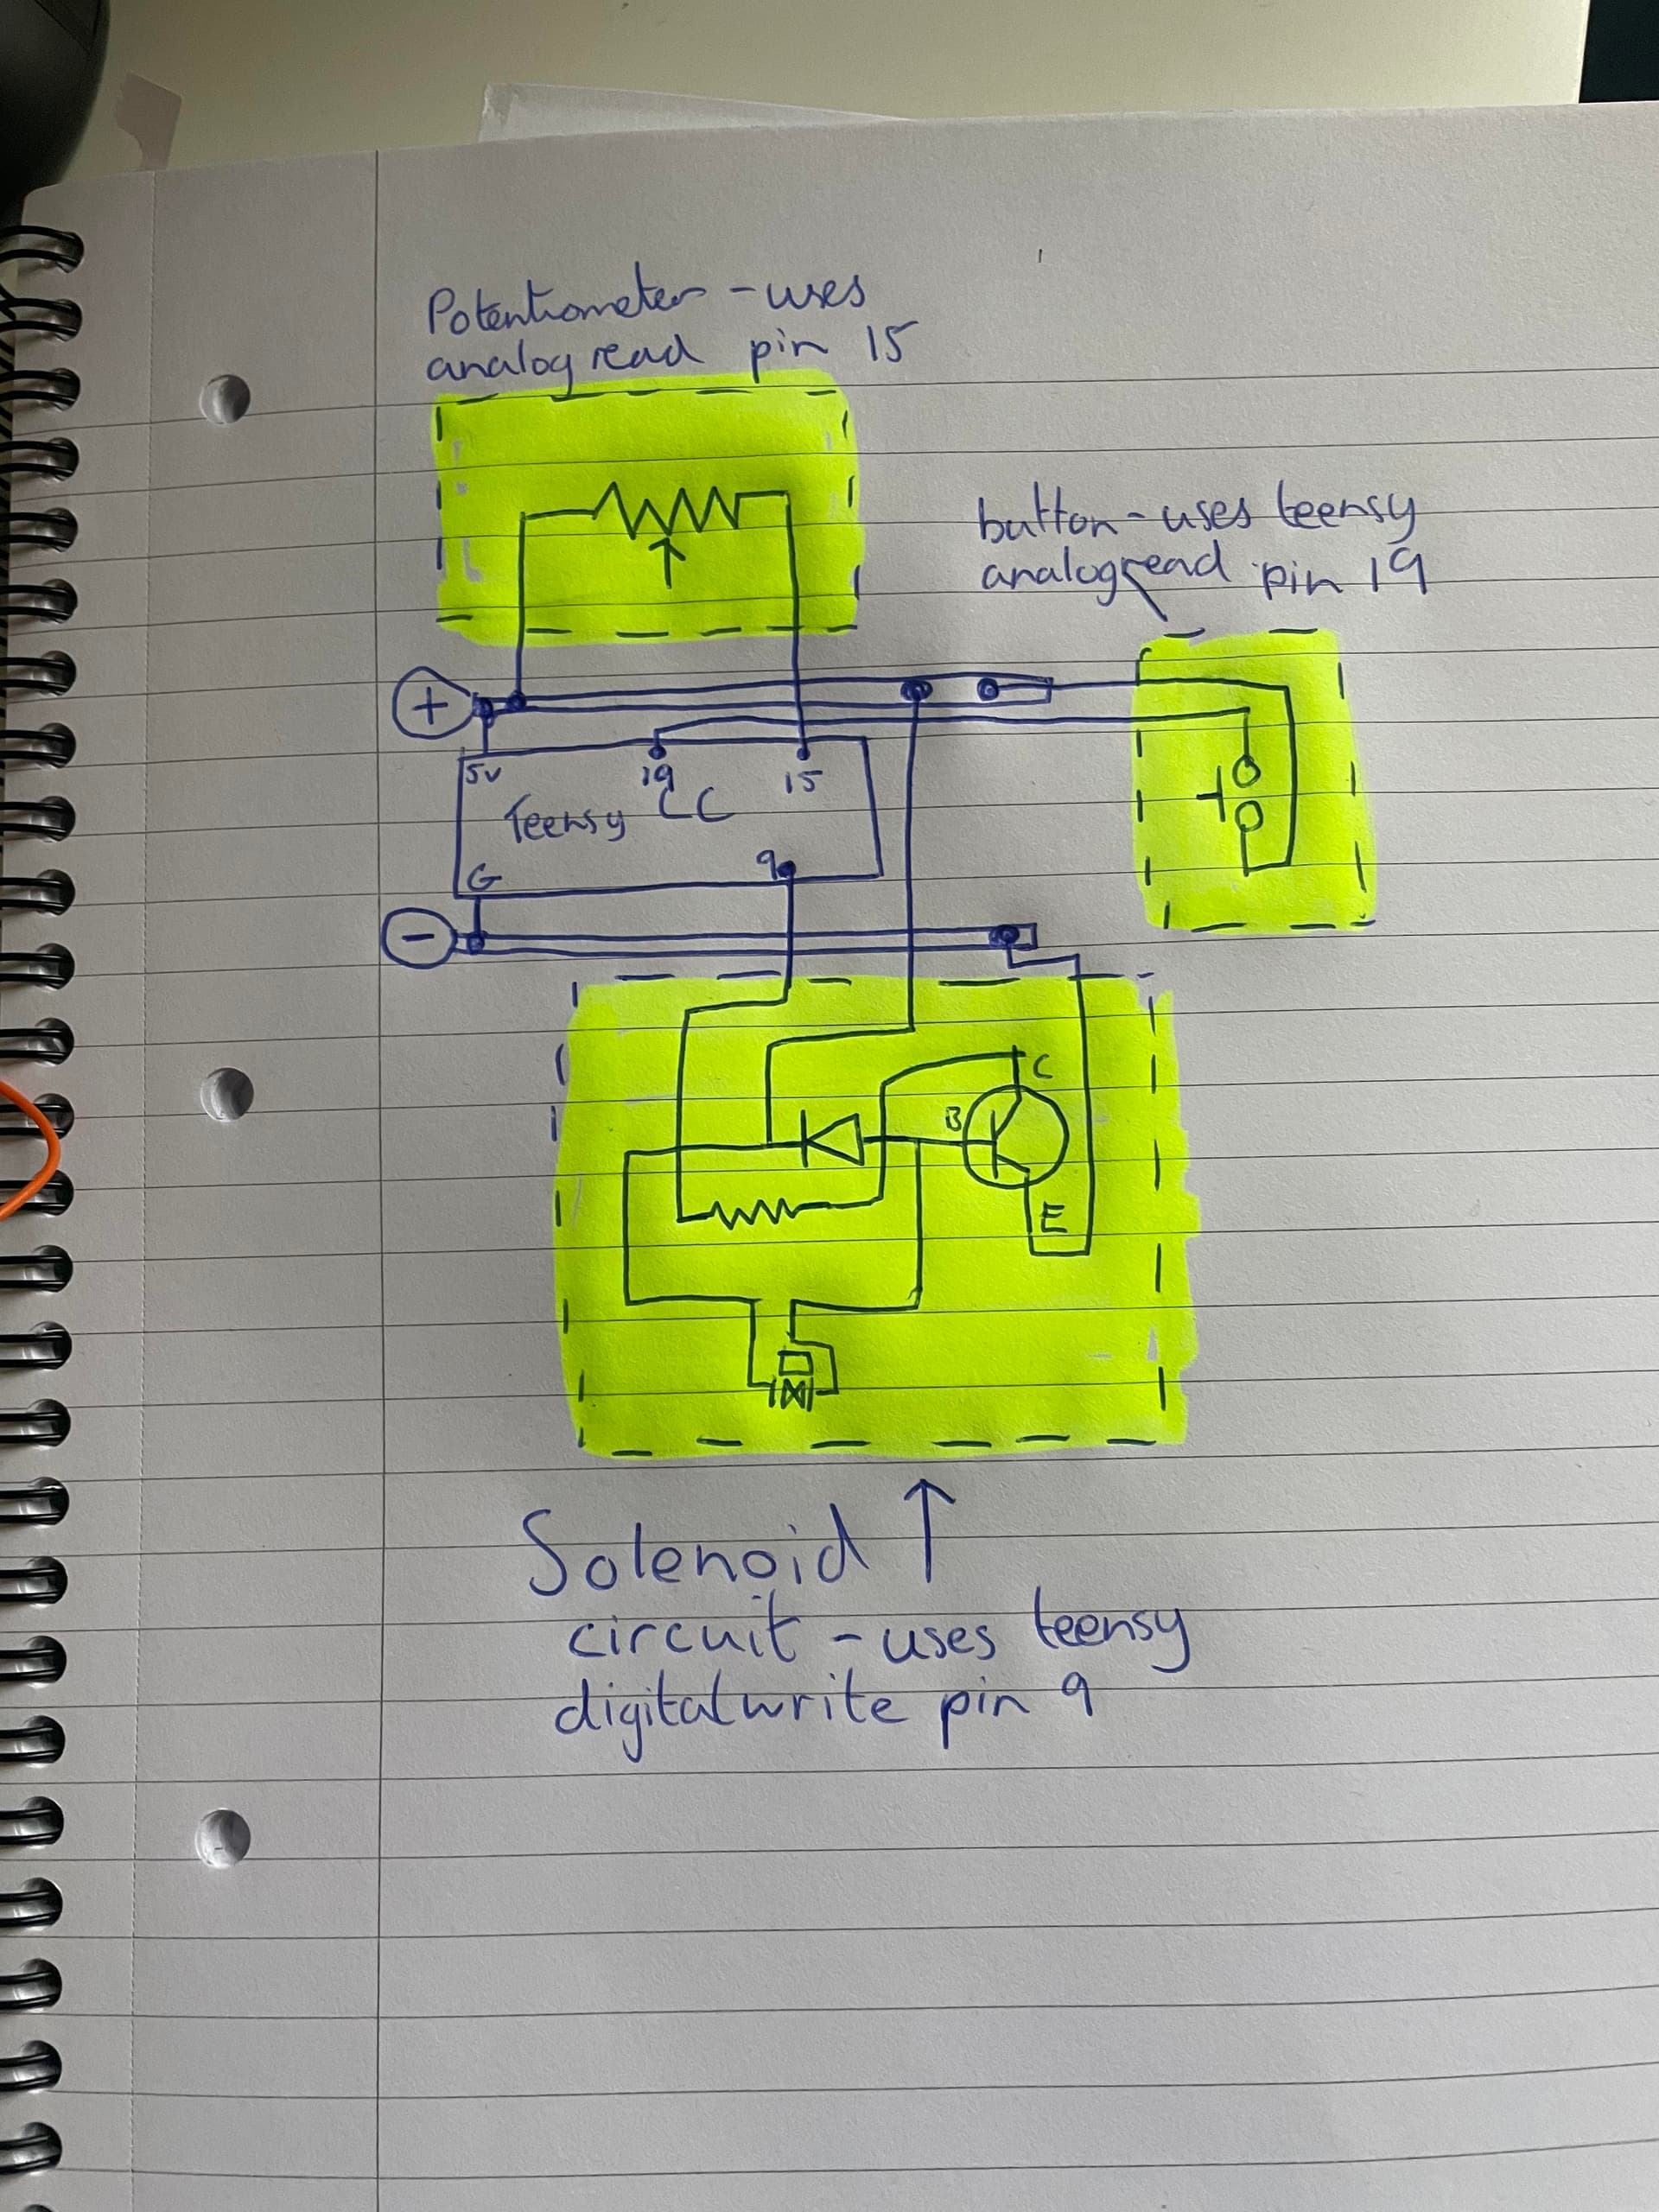 Potentiometer - uses
analog read pin 15
button - uses teensy
analogread pin 19
+
5v
19
15
Teensy LC
G
9
-
C
B
E
Solenoid ↑
circuit - uses teensy
digitalwrite pin 9